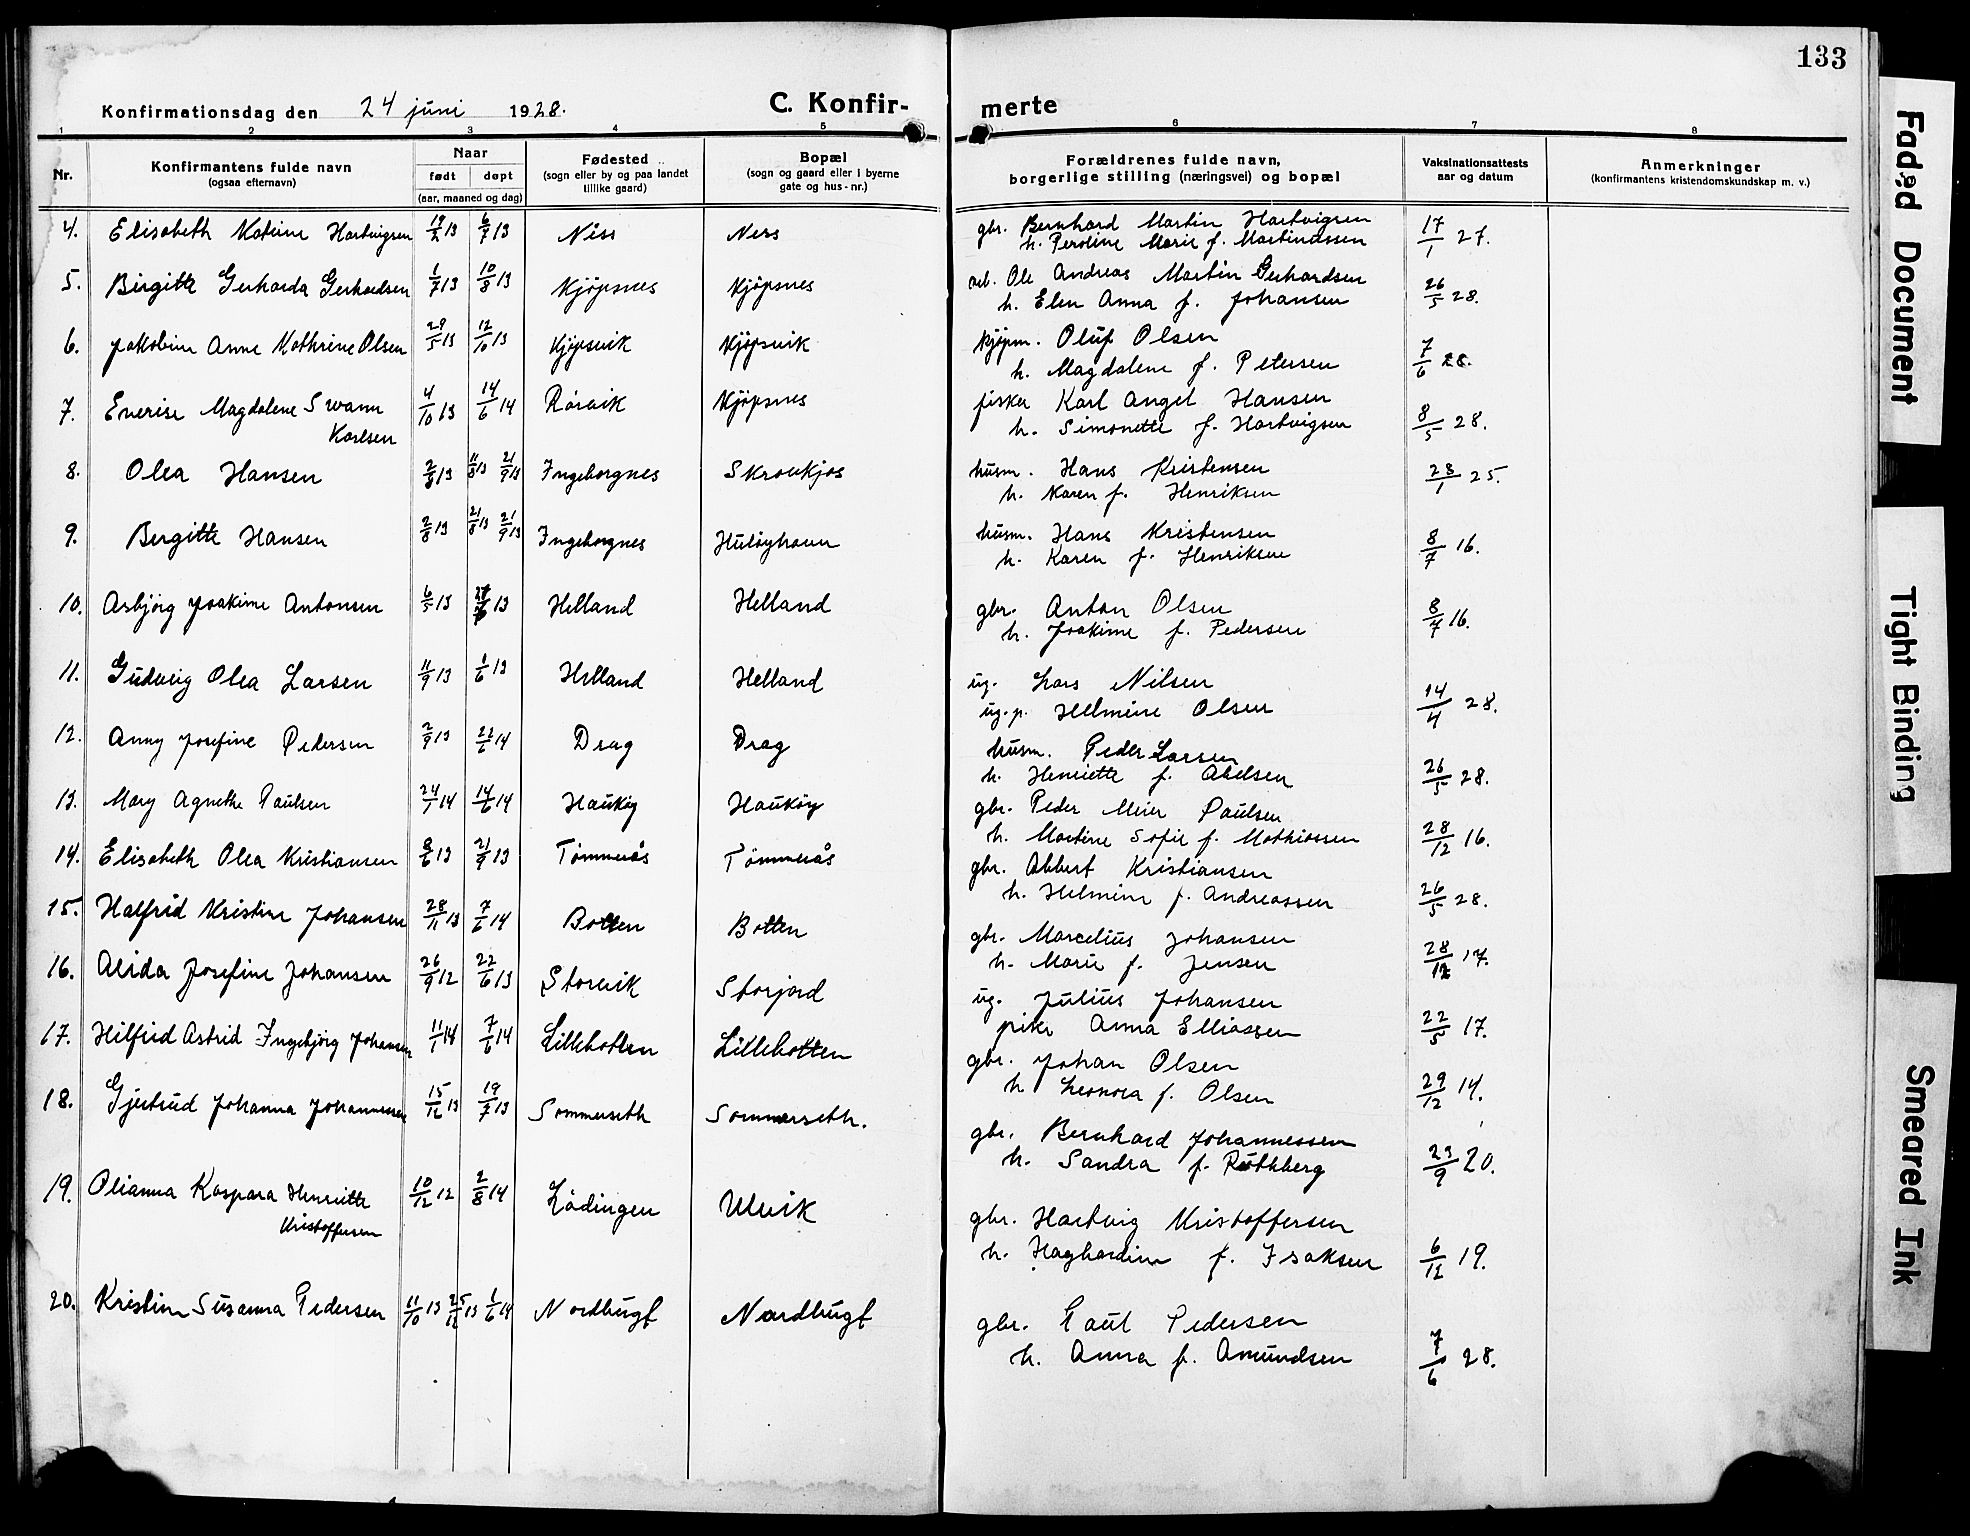 133
Konfirmationsdag den 24 juni 1928. C. Konfir- merte
1 2 3 4 5 6 7 8
Nr. Konfirmantens fulde navn (ogsaa efternavn) Naar født døpt (aar, maaned og dag) Fødested (sogn eller by og paa landet tillike gaard) Bopæl (sogn og gaard eller i byerne gate og hus-nr.) Forældrenes fulde navn, borgerlige stilling (næringsvei) og bopæl Vaksinationsattests aar og datum Anmerkninger (konfirmantens kristendomskundskap m. v.)
4. Elisabeth Katrine Hartvigsen 6/7 13 Ness Ness gbr. Bernhard Martin Hartvigsen 17/1 27.
h. Peroline Marie f. Martinussen
5. Birgitte Gerharda Gerhardsen 1/7 13 10/8 13 Kjöpsnes Kjöpsnes arb. Ole Andreas Martin Gerhardsen 26/5 28.
h. Elen Anna f. Johansen
6. Jakobine Anne Kathrine Olsen 29/5 13 12/10 13 Kjöpsvik Kjöpsvik kjöpm. Oluf Olsen 7/6 28.
h. Magdalene f. Petersen
7. Enerise Magdalene Swann 4/10 13 14/6 14 Rörvik Kjöpsnes fisker Karl Angel Hansen 8/5 28.
Karlsen h. Simonette f. Hartvigsen
8. Olea Hansen 2/8 13 11/8 13 21/9 13 Ingeborgnes Skroukjos husm. Hans Kristensen 23/1 25.
h. Karen f. Henriksen
9. Bergitte Hansen 2/8 13 21/8 13 21/9 13 Ingeborgnes Hulöyhavn husm. Hans Kristensen 8/7 16.
h. Karen f. Henriksen
10. Asbjörg Joakime Antonsen 6/5 13 13 Helland Helland gbr. Anton Olsen 8/7 16.
h. Joakime f. Pedersen
11. Gudveig Olea Larsen 11/9 13 1/6 13 Helland Helland ug. Lars Nilsen 14/4 28.
ug.p. Helmine Olsen
12. Anny Josefine Pedersen 2/9 13 22/6 14 Drag Drag husm. Peder Larsen 26/5 28.
h. Henriette f. Abelsen
13. Mary Agnethe Paulsen 24/1 14 14/6 14 Hauköy Hauköy gbr. Peder Meier Paulsen 28/12 16.
h. Martine Sofie f. Mathiassen
14. Elisabeth Olea Kristiansen 8/6 13 21/9 13 Tömmerås Tömmerås gbr. Albert Kristiansen 26/5 28.
h. Helmine f. Andreassen
15. Halfrid Kristine Johansen 28/11 13 7/6 14 Botten Botten gbr. Marcelius Johansen 28/12 17.
h. Marie f. Jensen
16. Alida Josefine Johansen 26/9 12 22/6 13 Storvik Storjord ug. Julius Johansen 22/5 17.
pike Anna Elliassen
17. Hilfrid Astrid Ingebjörg Johansen 11/1 14 7/6 14 Lillebotten Lillebotten gbr. Johan Olsen 29/12 14.
h Leonora f. Olsen
18. Gjertrud Johanna Johannessen 15/12 13 19/7 13 Sommerseth Sommerseth. gbr. Bernhard Johannessen 23/9 20.
h. Sandra f. Rothberg
19. Olianna Kaspara Henriette 10/12 12 2/8 14 Lödingen Ulvik gbr. Hartvig Kristoffersen 6/12 19.
Kristoffersen h. Hagbardine f. Isaksen
20. Kristine Susanna Pedersen 11/10 13 25/12 13 1/6 14 Nordbugt Nordbugt gbr. Paul Pedersen 7/6 28.
h. Anna f. Amundsen
Faded Document
Tight Binding
Smeared Ink